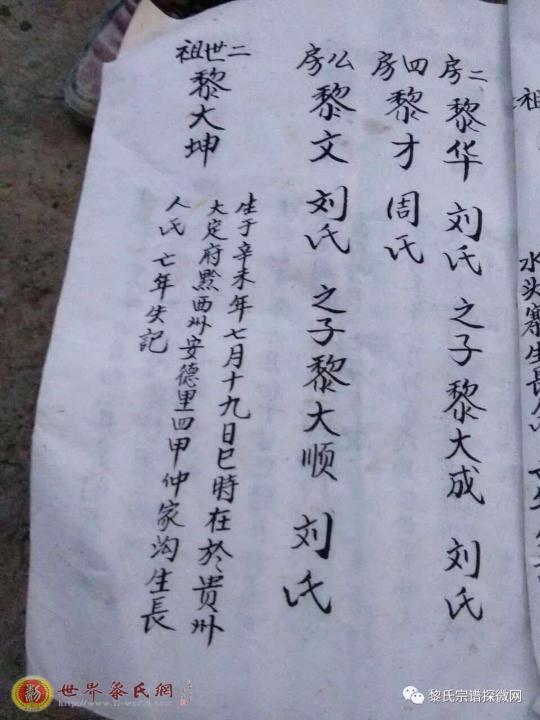 二房 黎华 刘氏 之子 黎大成 刘氏
四房 黎才 周氏
公房 黎文 刘氏 之子黎大顺 刘氏
二世祖 黎大坤
生于辛未年七月十九日巳時在於貴州
大定府黔西州安德里四甲仲家沟生長
人氏 亡年失記
祖
水头寨生長
世界黎氏網
www.li-world.com
黎氏宗谱探微网